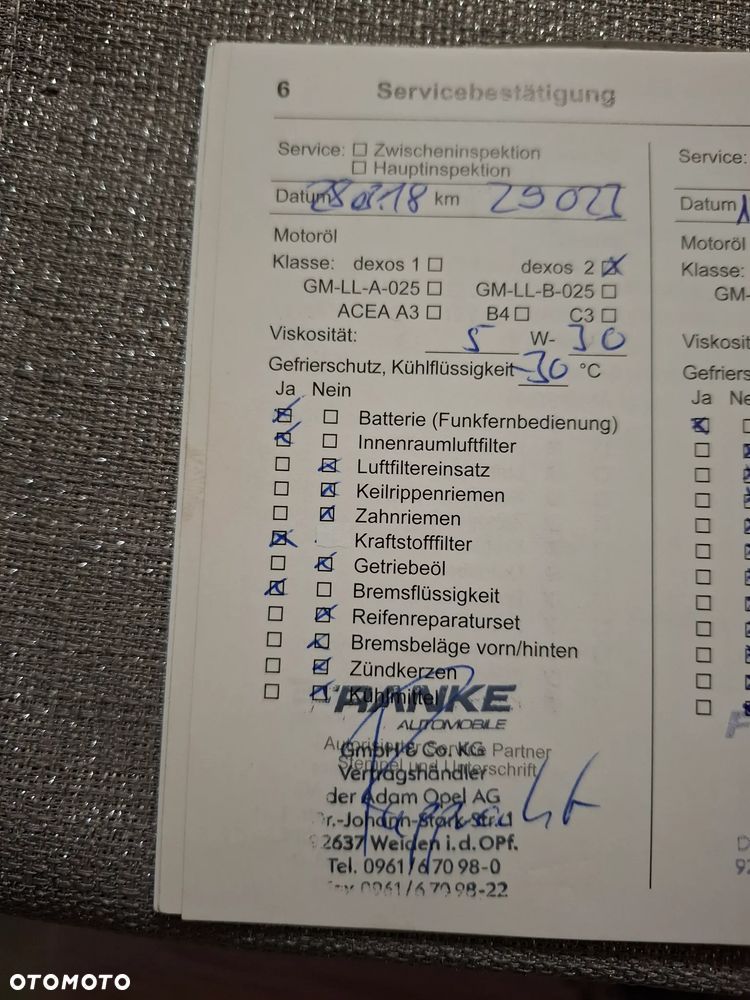 6 Servicebestätigung
Service: ☐ Zwischeninspektion
☐ Hauptinspektion
Datum km 29 021
Motoröl
Klasse: dexos 1 ☐ dexos 2 ☒
GM-LL-A-025 ☐ GM-LL-B-025 ☐
ACEA A3 ☐ B4 ☐ C3 ☐
Viskosität: 5 W- 30
Gefrierschutz, Kühlflüssigkeit -30 °C
Ja Nein
☒ ☐ Batterie (Funkfernbedienung)
☒ ☐ Innenraumluftfilter
☐ ☒ Luftfiltereinsatz
☐ ☒ Keilrippenriemen
☐ ☒ Zahnriemen
☒ Kraftstofffilter
☐ ☒ Getriebeöl
☒ ☐ Bremsflüssigkeit
☐ ☒ Reifenreparaturset
☐ ☒ Bremsbeläge vorn/hinten
☐ ☒ Zündkerzen
☐ ☒ Kühlmittel
AUTOMOBILE
Autorisierter Service Partner
GmbH & Co. KG
Stempel und Unterschrift
Vertragshändler
der Adam Opel AG
92637 Weiden i.d.OPf.
Tel. 0961/6 70 98-0
0961/6 70 98-22
Service:
Datum
Motoröl
Klasse:
GM-
Viskosit
Gefriers
Ja Ne
OTOMOTO